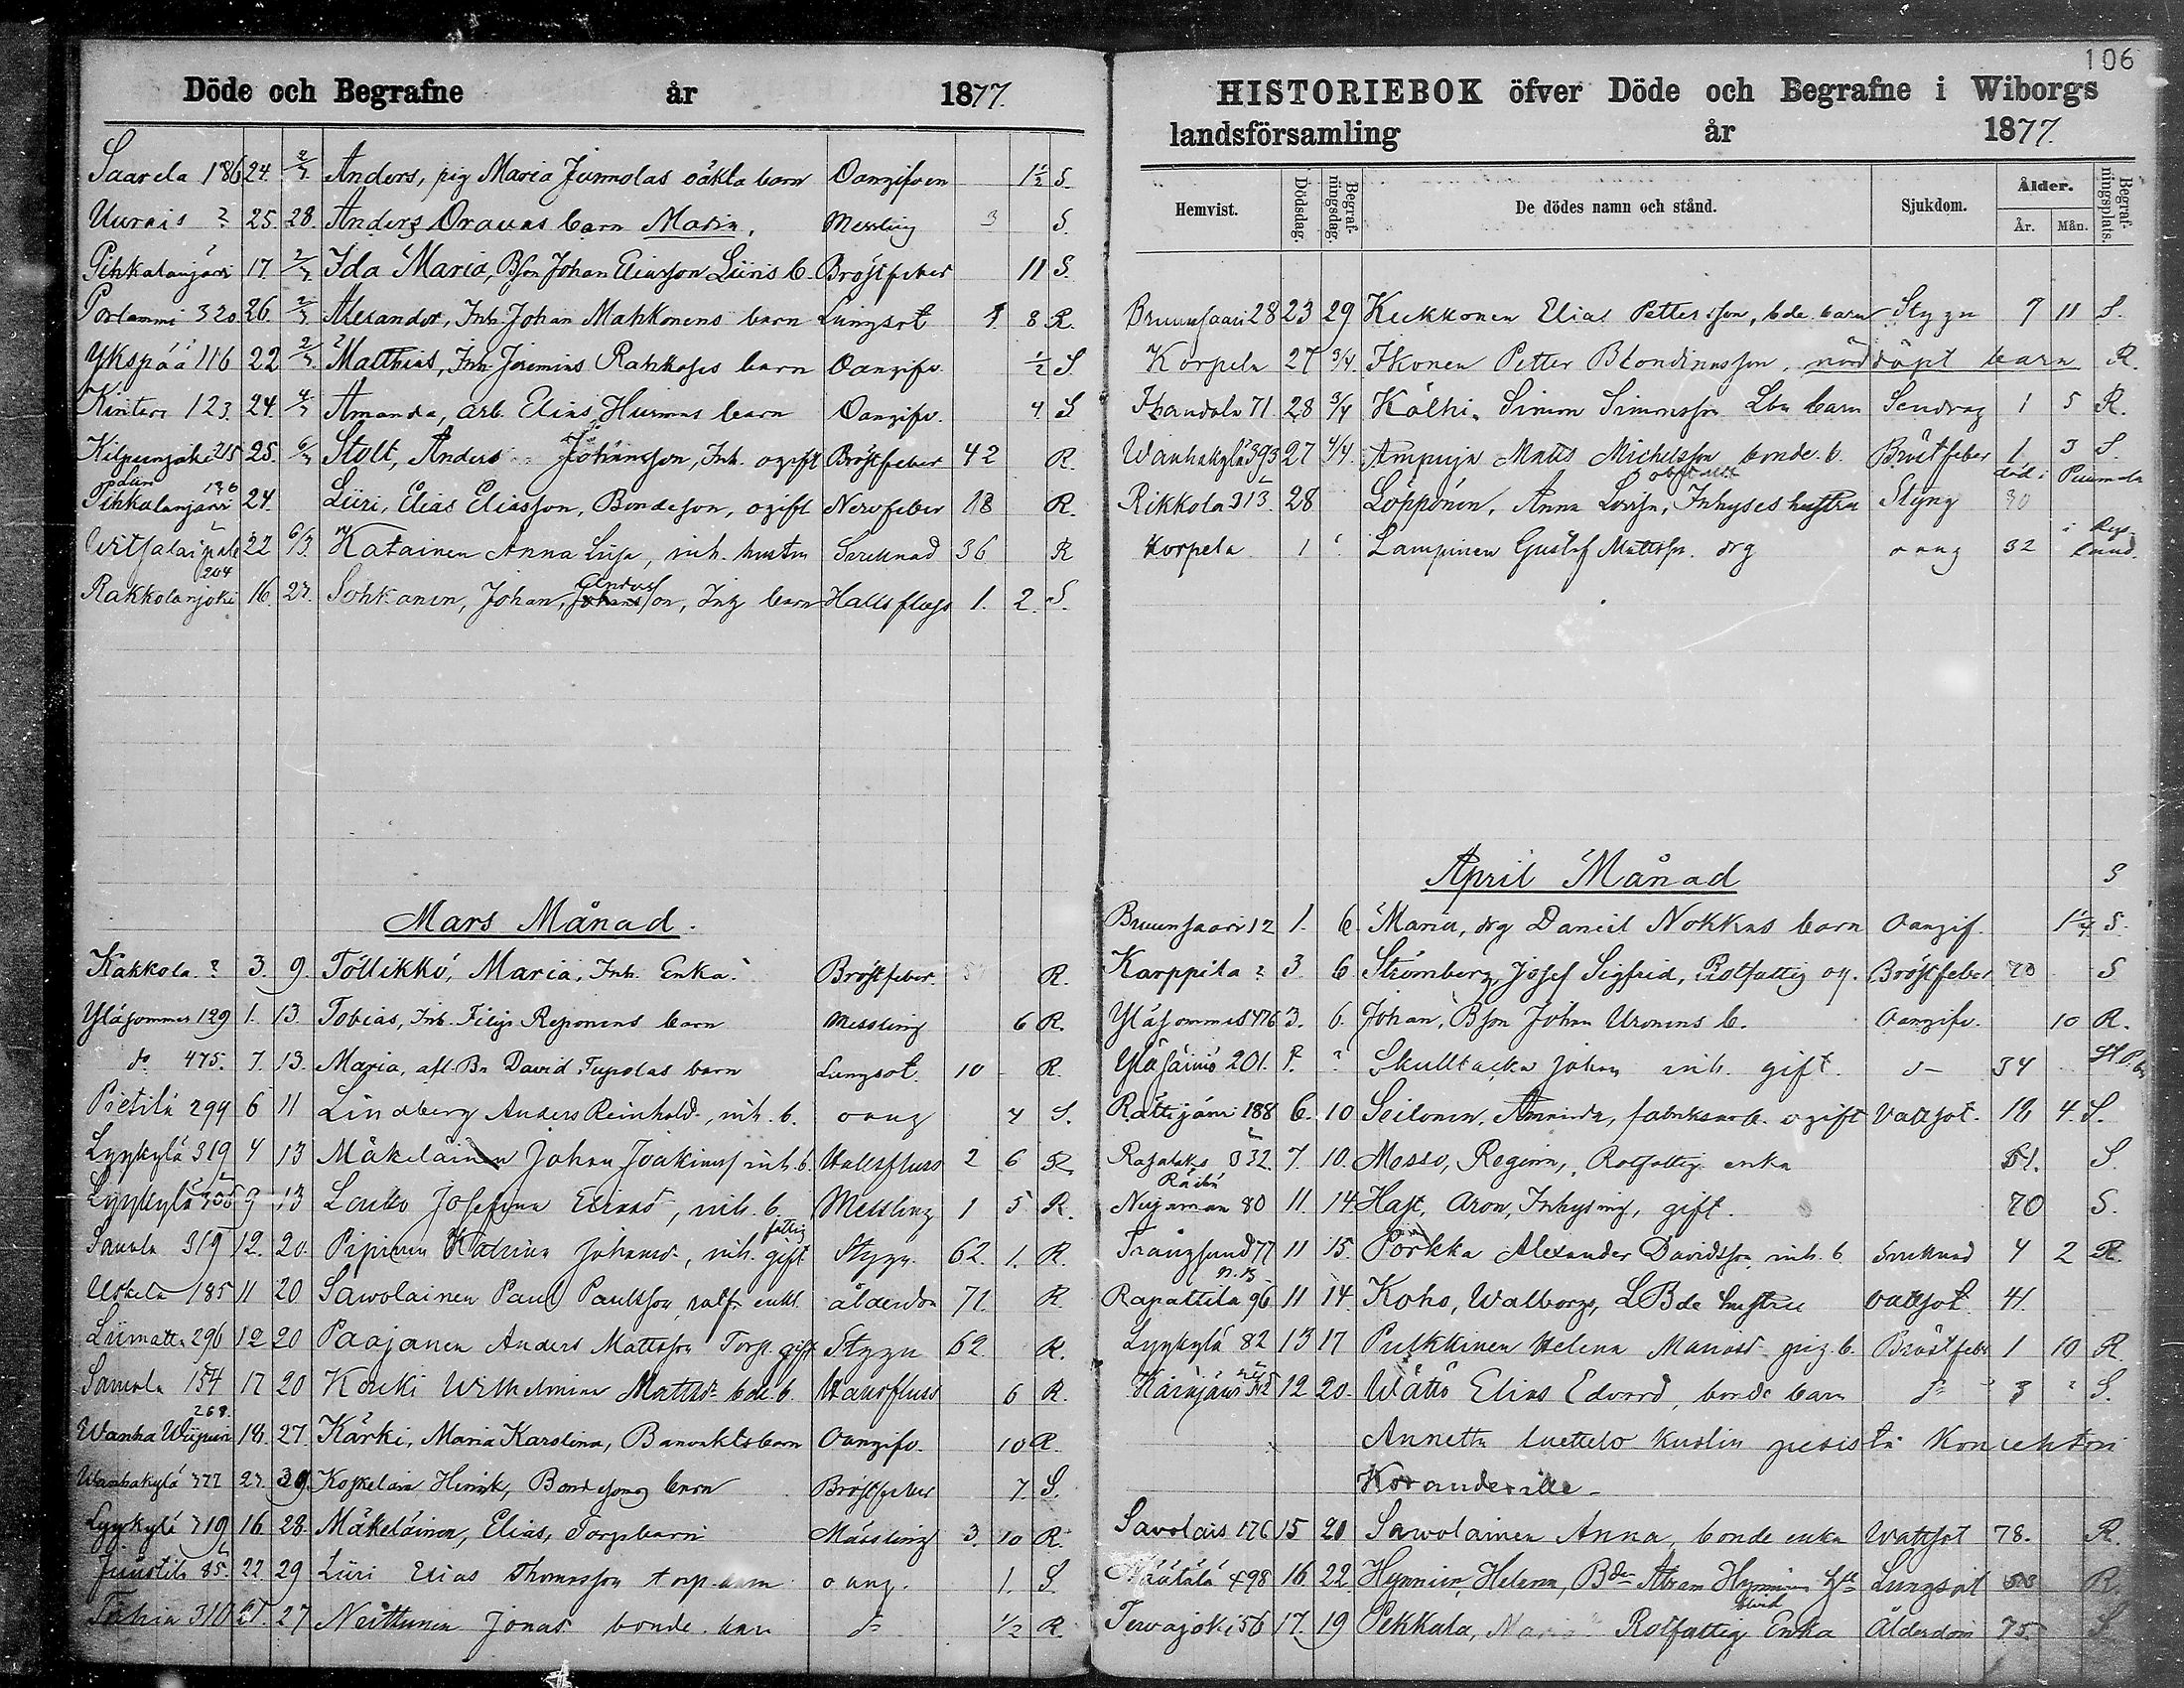 Döde och Begrafne år 1877.
Saarela 186 24. 2/3. Anders, pig Maria Jurmolas oäkta barn Oangifven 1 1/2 S.
Uurais ? 25. 28. Anders Oravas barn Maria. Messling 3 S.
Pihkalanjärvi 17. 2/3. Ida Maria, Bson Johan Eliasson Liiris b. Bröstfeber 11 S.
Porlammi 320 26. 2/3 Alexander, Inh Johan Mahkonens barn Lungsot 1 8 R.
Ykspää 116 22 2/3. Matthias, Inh. Jeremias Rahkoses barn Oangifv. 1/2 S
Kinteri 123. 24. 4/3 Amanda, arb. Elias Hurmas barn Oangifv. 4 S
Kilpeenjoki 215 25. 6/3 Stolt, Anders Johansson, Inh. ogift Bröstfeber 42 R.
Pihkalanjärvi 136 24. Liiri, Elias Eliasson, Bondeson, ogift Nervfeber 18 R.
22 6/3. Katainen Anna Lisa, inh. hustru 36 R
Rakkolanjoki 204 16. 27. Sohkanen, Johan, Inh barn Halsfluss 1. 2. S.
Mars Månad.
Kakkola ? 3. 9. Töllikkö, Maria, Inh. Enka. Bröstfeber. R.
Yläsommee 129 1. 13. Tobias, Inh. Filip Reponens barn Messling 6 R.
do 475. 7. 13. Maria, afl. Bn David Tupolas barn Lungsot. 10 R.
Pietilä 299 6 11 Lindberg Anders Reinhold, inh. b. oang 4 S.
Lyykylä 319 4 13 Mäkeläinen Johan Joakimss inh. b. Halsfluss 2 6 R
Lyykylä 9 13 Josefina Eliasd, inh. b. Messling 1 5 R.
319 12. 20. Pipinen Katrina Johansd. inh. fattig gift Stygn. 62. 1. R.
Uskela 185 11 20 Sawolainen Paul Paulsson rotf. enkl. ålderdom 71. R.
Liimatta 296 12 20 Paajanen Anders Mattsson Torp. gift Stygn 62. R.
Samola 154 17 20 Kouki Wilhelmina Mattsd. bde. b. Halsfluss 6 R.
Wanha Wiipuri 268. 18. 27. Kärki, Maria Karolina, Banvaktsbarn Oangifv. 10 R.
Wanhakylä 27. 30. Koskelain Henrik, Bondesons barn Bröstfeber 7 S.
Lyykylä 319 16 28. Mäkeläinen, Elias, Torpbarn Mässling 3. 10 R.
Juustila 85. 22. 29 Liiri Elias Thomasson torp. barn oang. 1. S.
310 27 Neittunen Jonas bonde barn do 1/2 R.
106
HISTORIEBOK öfver Döde och Begrafne i Wiborgs
landsförsamling år 1877.
Hemvist. Dödsdag. Begrafningsdag. De dödes namn och stånd. Sjukdom. Ålder. År. Mån. Begrafningsplats.
Bruunsaari 28 23 29 Kukkonen Elias Pettersson, bde. barn Stygn 7 11 S.
Korpela 27 3/4. Ikonen Petter Blondinusson, nöddöpt barn R.
71 28 3/4 Kälhi, Simon Simonsson Lbn barn Sendrag 1 5 R.
Wanhakylä 393 27 4/4. Ampuja Matts Michelsson bonde. b. Bröstfeber 1 3 S.
Rikkola 313. 28 Löppönen, Anna Inhyses hustru Styng 30 död i Puumala
Korpela 1 Lampinen Gustaf Mattsson. drg oang 32 i Ryssland.
April Månad S
Bruunsaari 12 1. 6. Maria, drg Daniel Nokkas barn Oangif. 1 1/4 S.
Karppila ? 3 6 Strömberg, Josef Sigfrid, Rotfattig og. Bröstfeber 70 S
Yläsommee 476 3. 6. Johan, Bson Johan Uronens b. Oangifv. 10 R.
Yläsäiniö 201. ? Skulltacka Johan inh. gift. 34
Rättijärvi 188 6. 10 Seilonen, Amanda, fabriksarb. ogift Vattsot. 18 4. S.
Rasalaks 32. 7. 10. Messo, Regina, Rotfattig enka 51. S.
Nuijaman 80 11. 14 Hast, Aron, Inhysing, gift. 70 S.
Trångsund 77 11 15. Porkka Alexander Davidsson inh. b. 4 2 R.
Rapattila 96 11 14. Koho, Walborg, LBde hustru Vattsot 41.
Lyykylä 82 13 17 Pulkkinen Helena Mariasd. pig. b. Bröstfeber 1 10 R.
Kärstjärvi 12 20. Wättö Elias Edvard, bonde barn do 3 ? S.
Annettu luettelo kuolin pesistä Konrehtori
Koranderille.
Savolais 176 15 20 Sawolainen Anna, bonde enka Wattsot 78. R.
Näätälä 498 16 22 Hynninen, Helena, Bden Abram Hynninens Hst Lungsot 53 R.
Terwajoki 56 17. 19 Pekkala, Rotfattig Enka Ålderdom 75. S